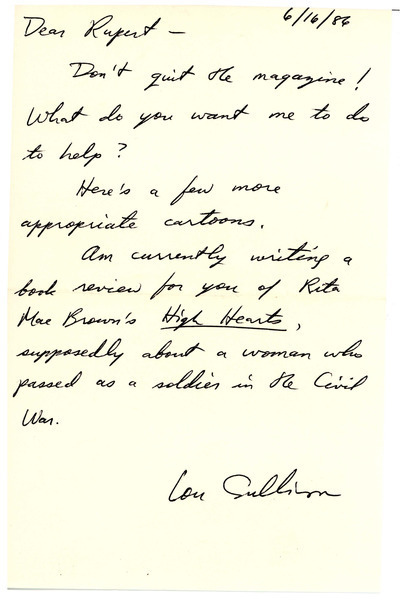 6/16/86
Dear Rupert —
Don't quit the magazine!
What do you want me to do
to help?
Here's a few more
appropriate cartoons.
Am currently writing a
book review for you of Rita
Mae Brown's High Hearts,
supposedly about a woman who
passed as a soldier in the Civil
War.
Lou Sullivan